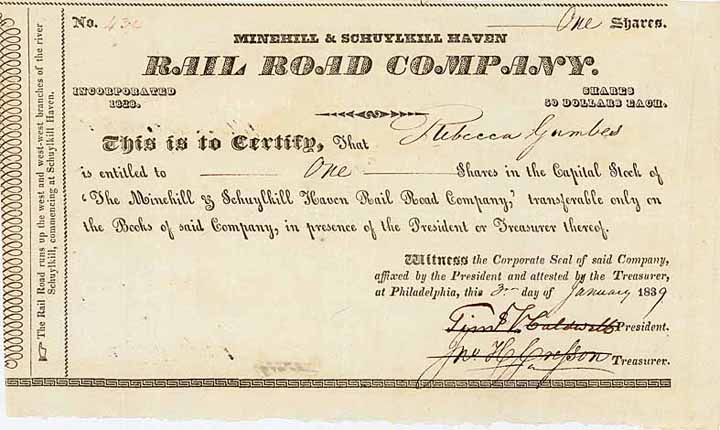 No. 434
One Shares.
MINEHILL & SCHUYLKILL HAVEN
RAIL ROAD COMPANY.
INCORPORATED
1828.
SHARES
50 DOLLARS EACH.
This is to Certify, That Rebecca Gumbes
is entitled to One Shares in the Capital Stock of
'The Minehill & Schuylkill Haven Rail Road Company,' transferable only on
the Books of said Company, in presence of the President or Treasurer thereof.
Witness the Corporate Seal of said Company,
affixed by the President and attested by the Treasurer,
at Philadelphia, this 3rd day of January 1839
President.
Jno. H. Cresson Treasurer.
☞ The Rail Road runs up the west and west-west branches of the river
Schuylkill, commencing at Schuylkill Haven.